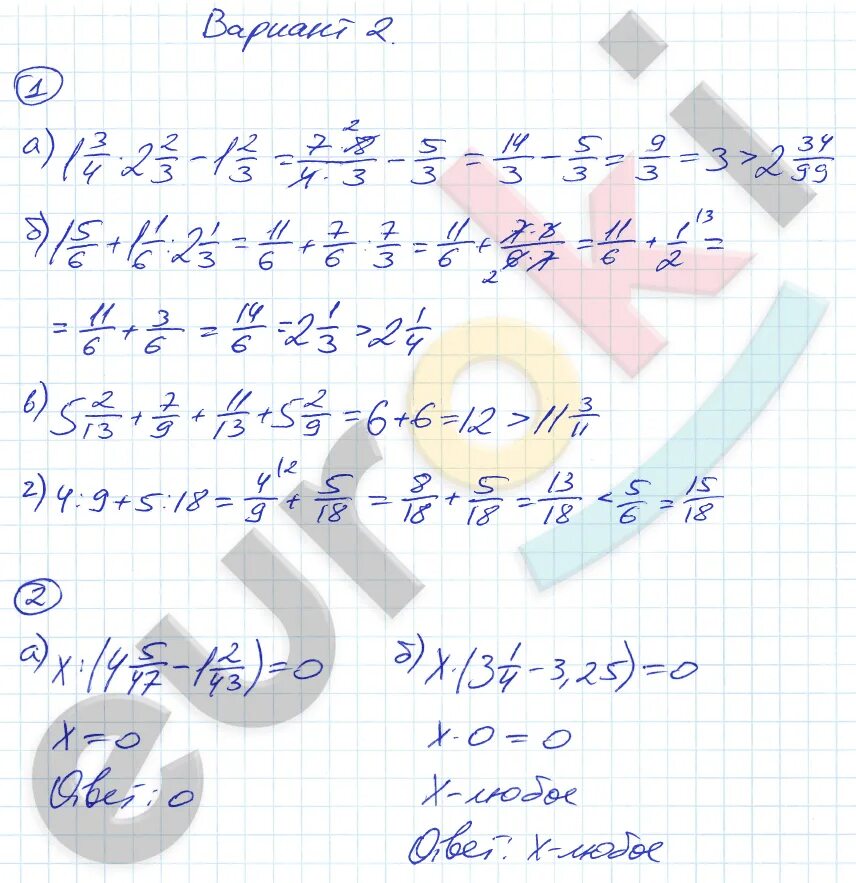 Вариант 2.
1
а) 1 3/4 · 2 2/3 − 1 2/3 = 7·8 2/4·3 − 5/3 = 14/3 − 5/3 = 9/3 = 3 > 2 34/99
б) 1 5/6 + 1 1/6 : 2 1/3 = 11/6 + 7/6 : 7/3 = 11/6 + 7·3/2 6·7 = 11/6 + 1/2 |3 =
= 11/6 + 3/6 = 14/6 = 2 1/3 > 2 1/4
в) 5 2/13 + 7/9 + 11/13 + 5 2/9 = 6 + 6 = 12 > 11 3/11
г) 4 : 9 + 5 : 18 = 4/9 |2 + 5/18 = 8/18 + 5/18 = 13/18 < 5/6 = 15/18
2
а) x : (4 5/47 − 1 2/43) = 0
x = 0
Ответ: 0
б) x · (3 1/4 − 3,25) = 0
x · 0 = 0
x - любое
Ответ: x - любое
euroki